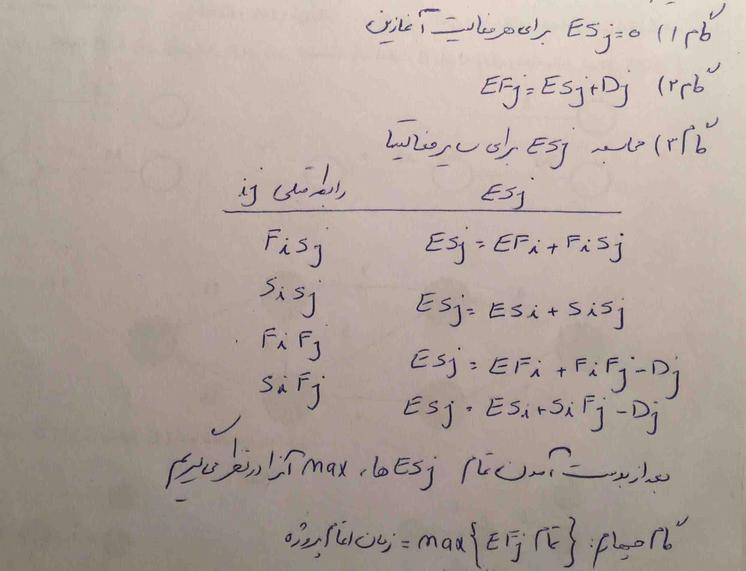 گام ۱) ESj=0 برای هر فعالیت آغازین
گام ۲) EFj=ESj+Dj
گام ۳) محاسبه ESj برای سایر فعالیتها
رابطه قبلی ij ESj
FiSj ESj = EFi + FiSj
SiSj ESj = ESi + SiSj
FiFj ESj = EFi + FiFj - Dj
SiFj ESj = ESi + SiFj - Dj
بعد از بدست آمدن تمام ESj ها، max آنرا در نظر می‌گیریم
گام چهارم: max{EFj تمام} = زمان اتمام پروژه